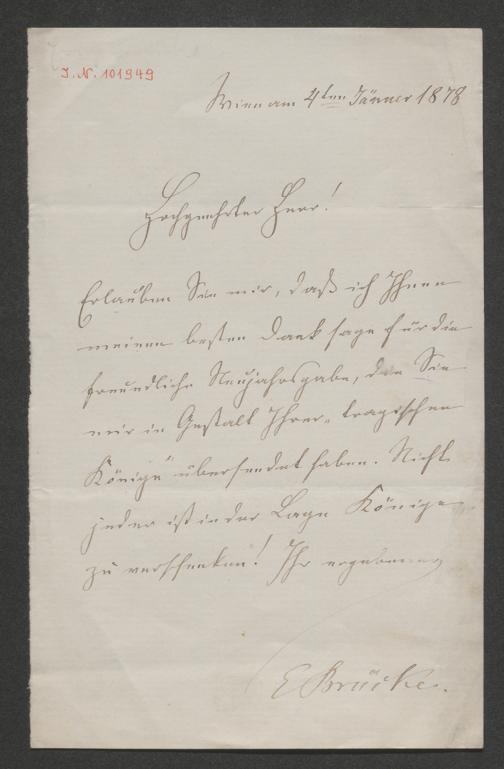 I. N. 101949
Wien am 4ten Jänner 1878
Hochgeehrter Herr!
Erlauben Sie mir, daß ich Ihnen
meinen besten Dank sage für die
freundliche Neujahrsgabe, die Sie
mir in Gestalt Ihrer „tragischen
Könige“ übersendet haben. Nicht
jeder ist in der Lage Könige
zu verschenken! Ihr ergebener
E Brücke.